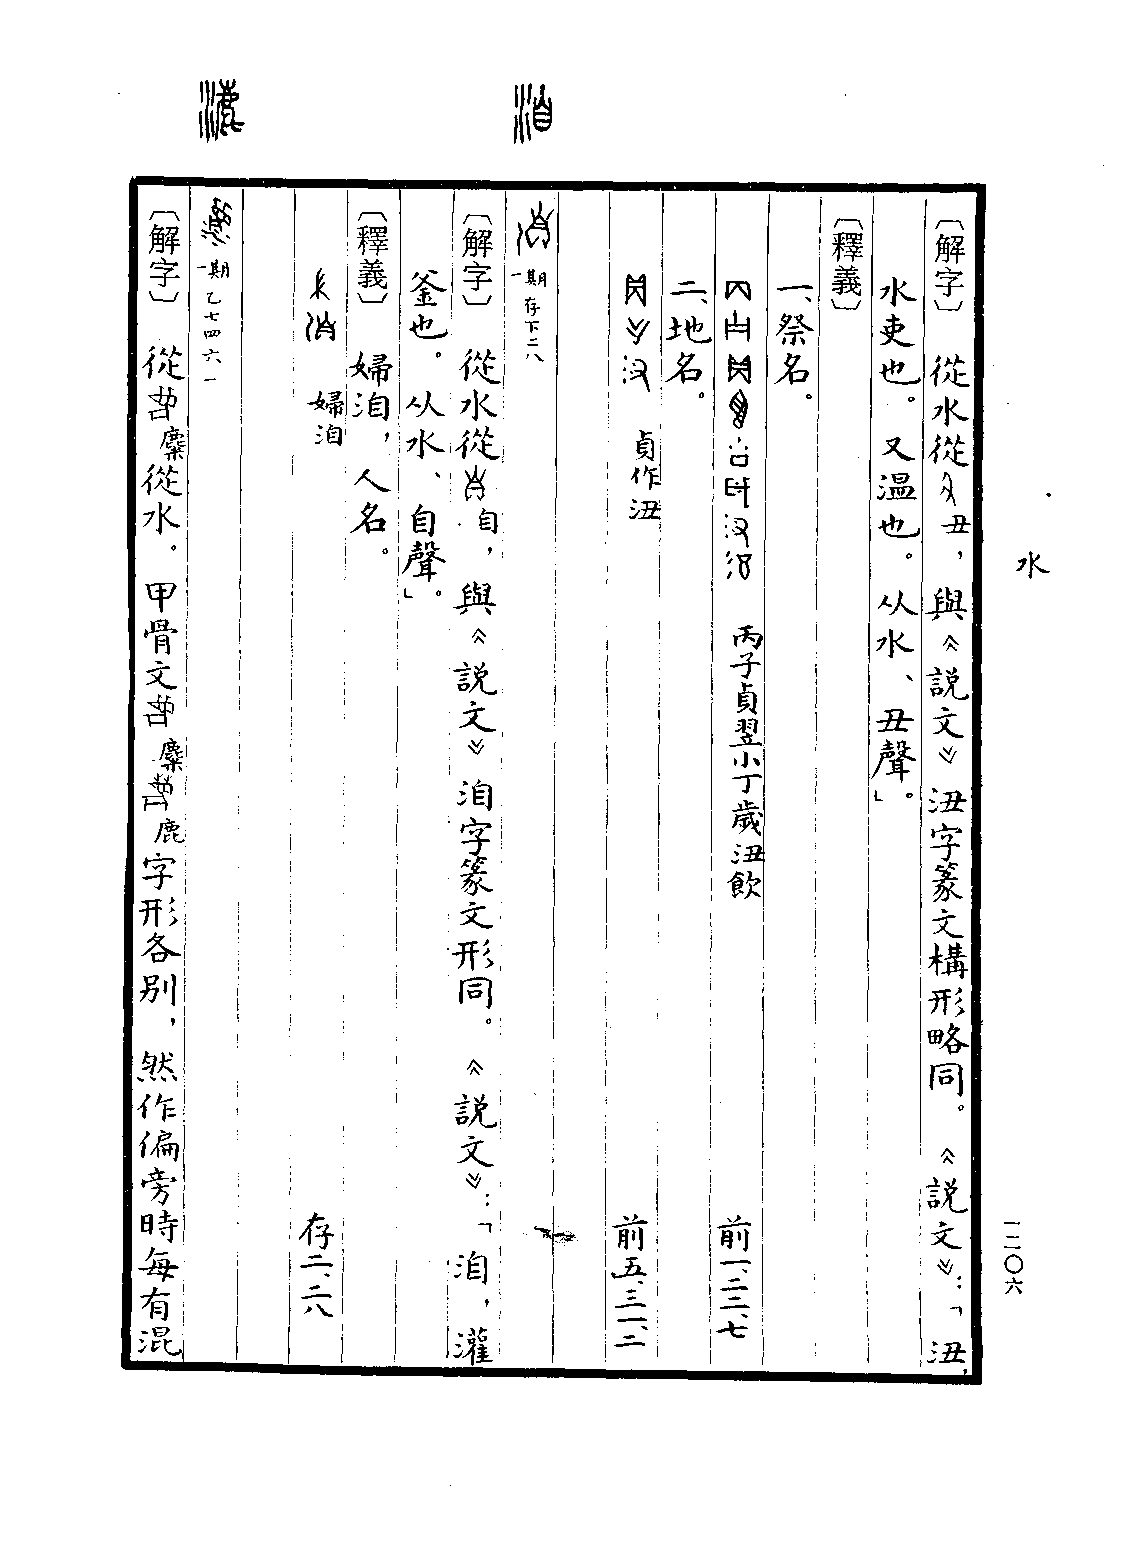 水
一二〇六
〔解字〕從水從丑，與《説文》沑字篆文構形略同。《説文》：「沑，
水吏也。又温也。从水、丑聲。」
〔釋義〕
一、祭名。
丙子貞翌小丁歲沑飲 前一、二三、七
二、地名。
貞作沑 前五、三一、二
洎
一期 存下二八
〔解字〕從水從自，與《説文》洎字篆文形同。《説文》：「洎，灌
釜也。从水、自聲。」
〔釋義〕婦洎，人名。
婦洎 存二、二八
一期 乙七四六一
〔解字〕從麋從水。甲骨文麋鹿字形各别，然作偏旁時每有混